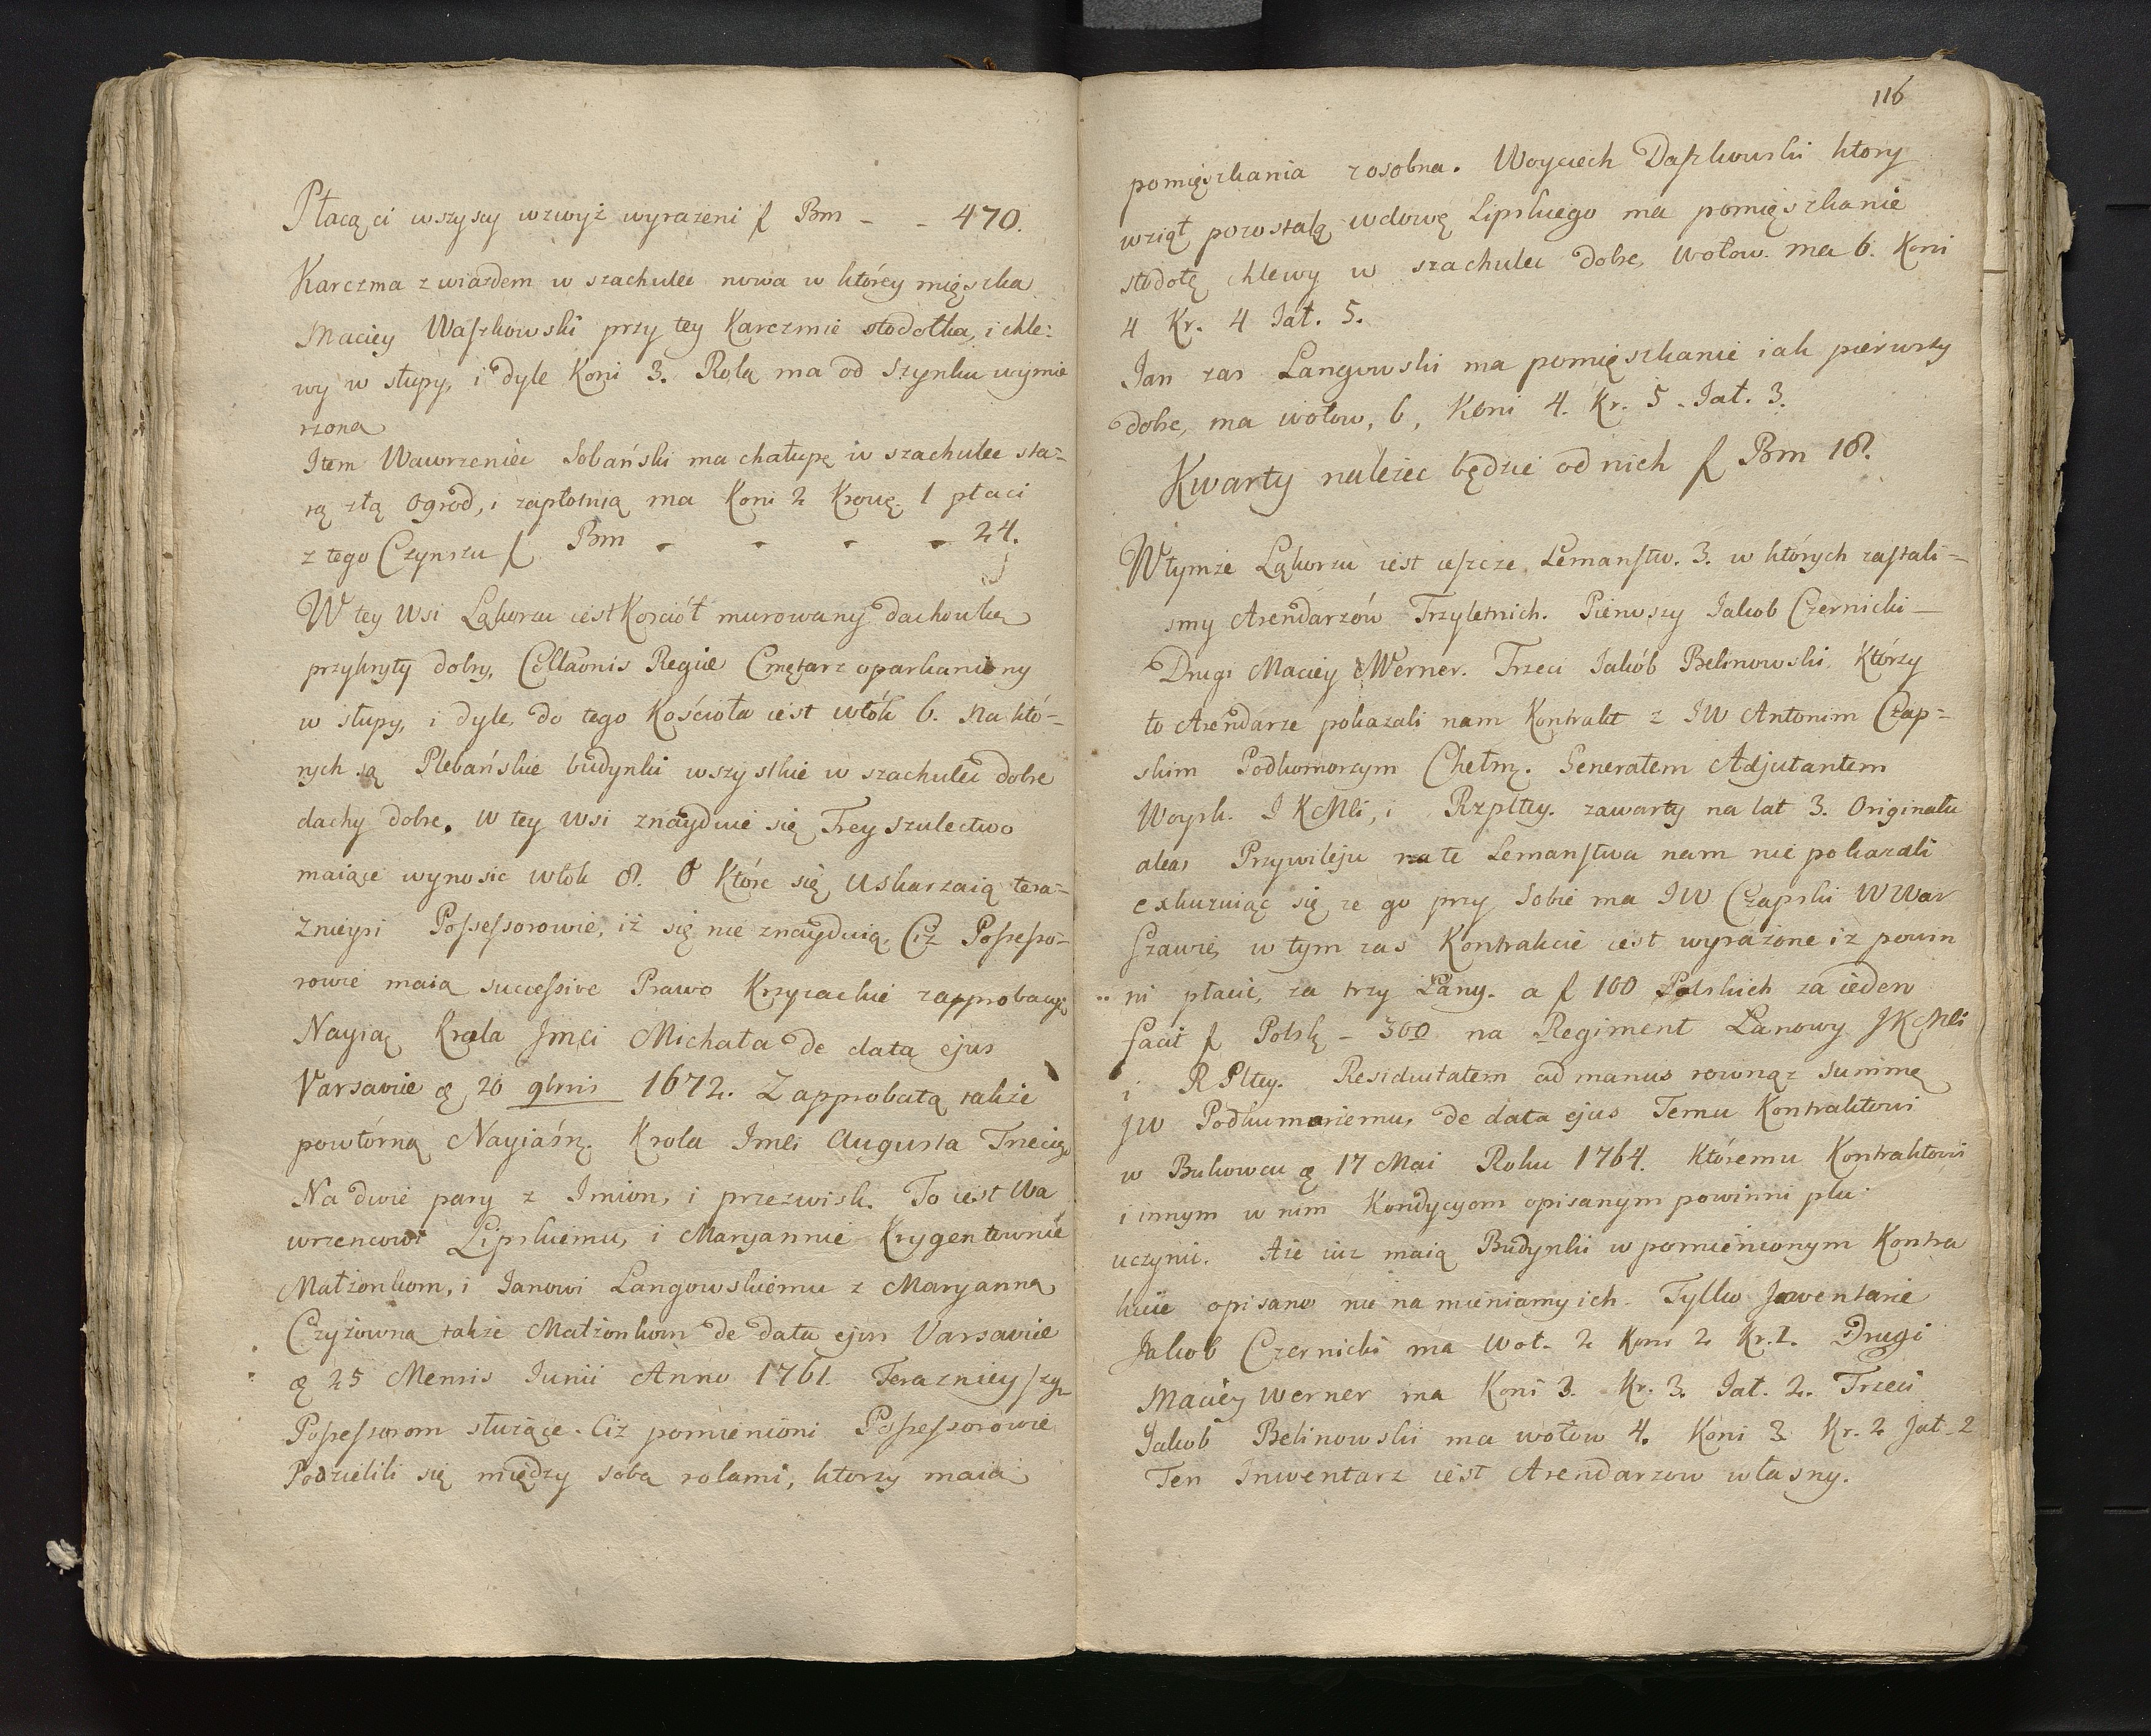 Płacą ci wszyscy wzwyż wyrazeni f Bm - - 470.
Karczma z wiazdem w szachulec nowa w którey mięszka
Maciey Waszkowski przy tey Karczmie stodołka, i chle:
wy w słupy, i dyle Koni 3. Rolą ma od Szynku wymie
rzoną
Item Wawrzeniec Sobański ma chałupę w szachulec sta=
rą złą ogrod, i zapłotnią ma Koni 2 Krowę. 1 płaci
z tego Czynszu f Bm - - - - 24.
W tey Wsi Ląkorzu iest Kosciół murowany dachowką
przykryty dobry, Collaonis Regiæ Cmętarz oparkaniony
w słupy, i dyle, do tego Kościoła iest włók 6. na któ-
rych są Plebańskie budynki wszystkie w szachulec dobre
dachy dobre. W tey wsi znayduie się Frey szulectwo
maiące wynosic włok 8. O które się uskarzaią tera=
znieysi Possessorowie, iż się nie znayduią, Ciż Possesso=
rowie maią successive Prawo Krzyzackie zapprobacyi
Nayiaę Krola Jmci Michała de data ejus
Varsaviæ ę 20 9bris 1672. Z approbatą także
powtórną Nayiaśnę. Krola Jmci Augusta Trzeciego
Na dwie pary z Imion, i przezwisk. To iest Wa
wrzencowi Lipskiemu, i Maryannie Krygentownie
Małżonkom, i Janowi Langowskiemu z Maryanną
Czyżowną także Małżonkom de data ejus Varsaviæ
ę 25 Mensis Junii Anno 1761. Terazniey szym
Possessorom służące. Ciż pomienioni Possessorowie
Podzielili się między sobą rolami, ktorzy maią
116
pomięszkania zosobna. Woyciech Daszkowski ktory
wziął pozostałą wdowę Lipskiego ma pomięszkanie
stodołę chlewy w szachulec dobre, wołow. ma 6. Koni
4 Kr. 4 Jał. 5.
Jan zas Langowski ma pomięszkanie iak pierwszy
dobre, ma wołow, 6, Koni 4. Kr. 5 - Jał. 3.
Kwarty należec będzie od nich f Bm 18.
W tymże Ląkorzu iest ieszcze Lemanstw. 3. w których zastali=
smy Arendarzów Trzyletnich. Pierwszy Jakob Czernicki -
Drugi Maciey Werner. Trzeci Jakób Belinowski, Którzy
to Arendarze pokazali nam Kontrakt z JW Antonim Czap=
skim Podkomorzym Chełmę. Generałem Adjutantem
Woysk. J K Mci, i Rzpltey. zawarty na lat 3. Originału
aleas Przywileju na te Lemanstwa nam nie pokazali
exkuzuiąc się ze go przy sobie ma JW Czapski w War
szawie, w tym zas Kontrakcie iest wyrażone iż powin
ni płacic, za trzy Łany. a f 100 Polskich za ieden
facit f Polskę - 300 na Regiment Lanowy JKMci
i R Pltey. Residuitatem ad manus rowną z summę
JW Podkomoriemu, de data ejus Temu Kontraktowi
w Bukowcu ę 17 Mai Roku 1764. Któremu Kontraktowi
i innym w nim Kondycyom opisanym powinni
uczynic. Aże iuz maią Budynki w pomienionym Kontra
kcie opisano nie na mieniamy ich. Tylko Inventarie
Jakob Czernicki ma Woł. 2 Koni 2 Kr. 1. Drugi
Maciey Werner ma Koni 3. Kr. 3. Jał. 2. Trzeci
Jakob Belinowski ma wołow 4. Koni 3 Kr. 2 Jał - 2
Ten Inwentarz iest Arendarzow własny.